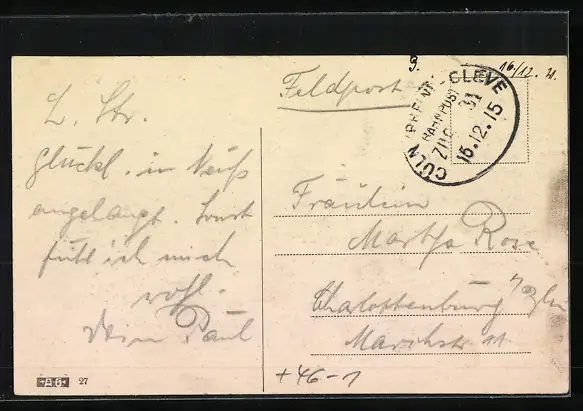 9.
16/12. 
Feldpost
CÖLN (RHEIN) - CLEVE
BAHNPOST
ZUG 31
15.12.15
L. Str.
Glückl. in Neuß
angelangt. Sonst
fühl ich mich
wohl.
Dein Paul
Fräulein
Martha Rose
Charlottenburg /Bln
Marchstr. 11
A.G. 27
+46-1